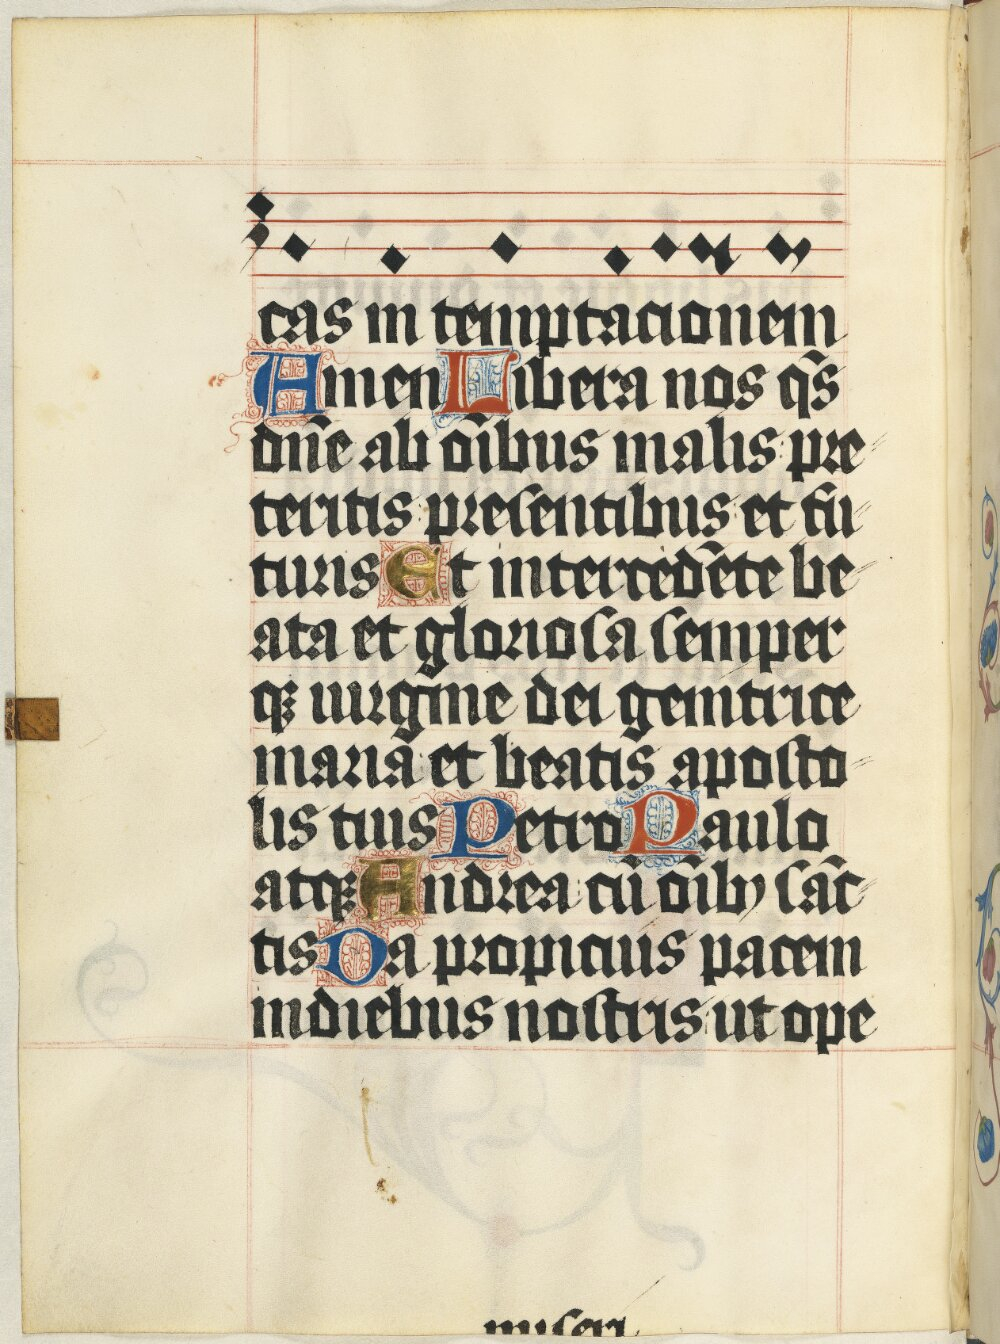 cas in temptacionem
Amen Libera nos q̄s
dn̄e ab oībus malis pre
teritis presentibus et fu
turis Et intercedēte be
ata et gloriosa semper
qꝫ uirgine dei genitrice
maria et beatis aposto
lis tuis Petro Paulo
atqꝫ Andrea cū oībꝫ sāc
tis Da propicius pacem
in diebus nostris ut ope
miseri